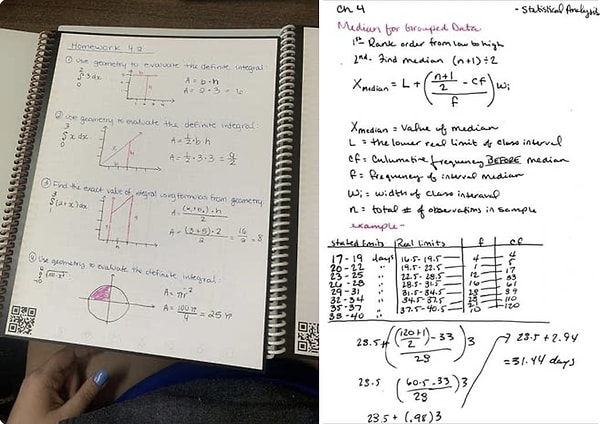 Homework 4.2
① Use geometry to evaluate the definite integral:
∫₀² 3 dx
A = b·h
A = 2·3 = 6
② Use geometry to evaluate the definite integral:
∫₀³ x dx
A = ½·b·h
A = ½·3·3 = 9/2
③ Find the exact value of integral using formulas from geometry:
A = (3+5)·2 / 2 = 16/2 = 8
④ Use geometry to evaluate the definite integral:
A = πr²
A = 100π/4 = 25π
Ch 4
- Statistical Analysis
Median for Grouped Data
1st - Rank order from low to high
2nd - Find median (n+1)÷2
Xmedian = L + ((n+1)/2 - cf / f) Wi
Xmedian = Value of median
L = the lower real limit of class interval
cf = Culumative frequency BEFORE median
f = frequency of interval median
Wi = width of class interval
n = total # of observations in sample
example -
stated limits | Real Limits | f | cf
17 - 19 days 16.5 - 19.5 4 4
20 - 22 " 19.5 - 22.5 5
23 - 25 " 22.5 - 28.5 12 17
26 - 28 " 28.5 - 31.5 16 33
29 - 31 " 31.5 - 34.5 28 61
32 - 34 " 34.5 - 37.5
35 - 37 " 37.5 - 40.5 110
38 - 40 " 10 120
28.5 + (((120+1)/2 - 33) / 28) 3
28.5 (60.5 - 33 / 28) 3
28.5 + (.98) 3
→ 28.5 + 2.94
= 31.44 days